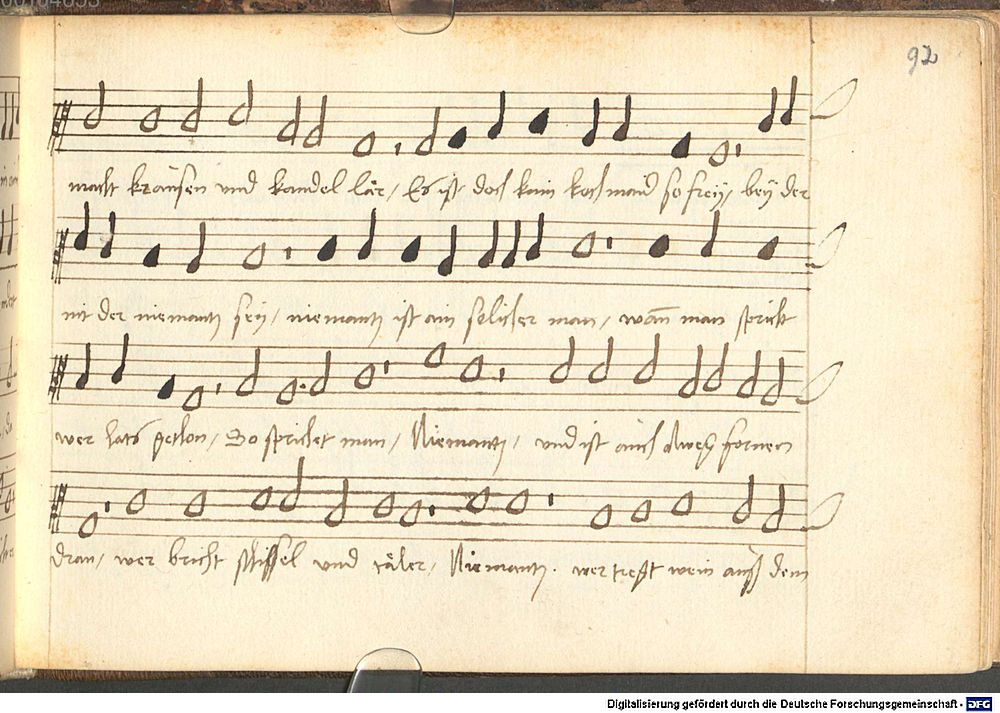 92
macht krausen und kandel lär / Es ist doch kain kochmaid so frey / bey der
nit der niemantz sey / niemantz ist ain selicher man / wan̄ man spricht
wer hats gethon / So sprichet man / Niemantz / und ist auch alweg fornen
dran / wer bricht schissel und täler / Niemantz . wer tregt wein auß dem
Digitalisierung gefördert durch die Deutsche Forschungsgemeinschaft - DFG